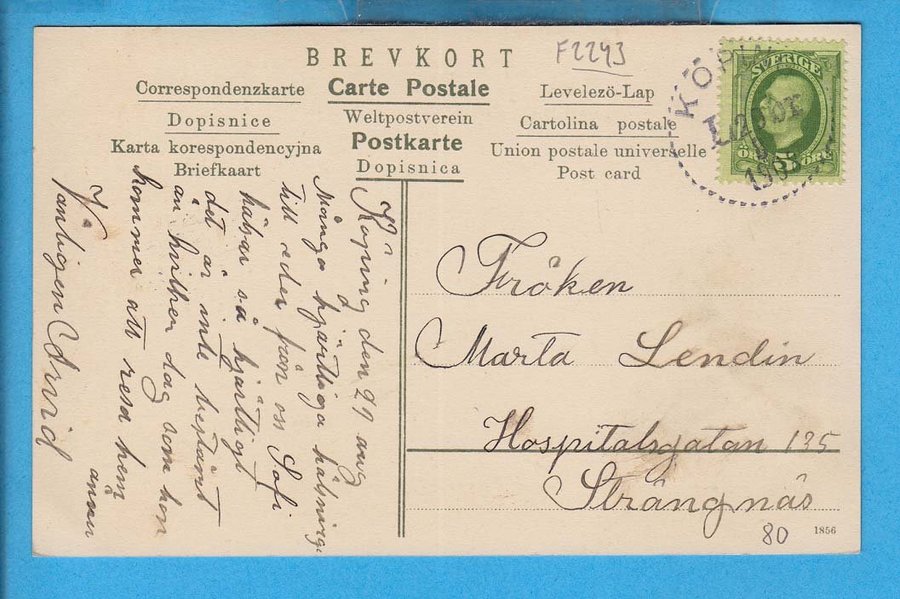 BREVKORT
F2243
Correspondenzkarte
Carte Postale
Levelezö-Lap
Dopisnice
Weltpostverein
Cartolina postale
Karta korespondencyjna
Postkarte
Union postale universelle
Briefkaart
Dopisnica
Post card
SVERIGE
5
ÖRE ÖRE
KÖPIN
190
Köping den 29 aug
Många hjärtliga hälsningar
till eder från oss Sofi
hälsar så hjärtligt
det är inte bestämt
än hvilken dag som hon
kommer att resa hem
Vänligen Arvid
Fröken
Marta Lendin
Hospitalsgatan 135
Strängnäs
80
1856